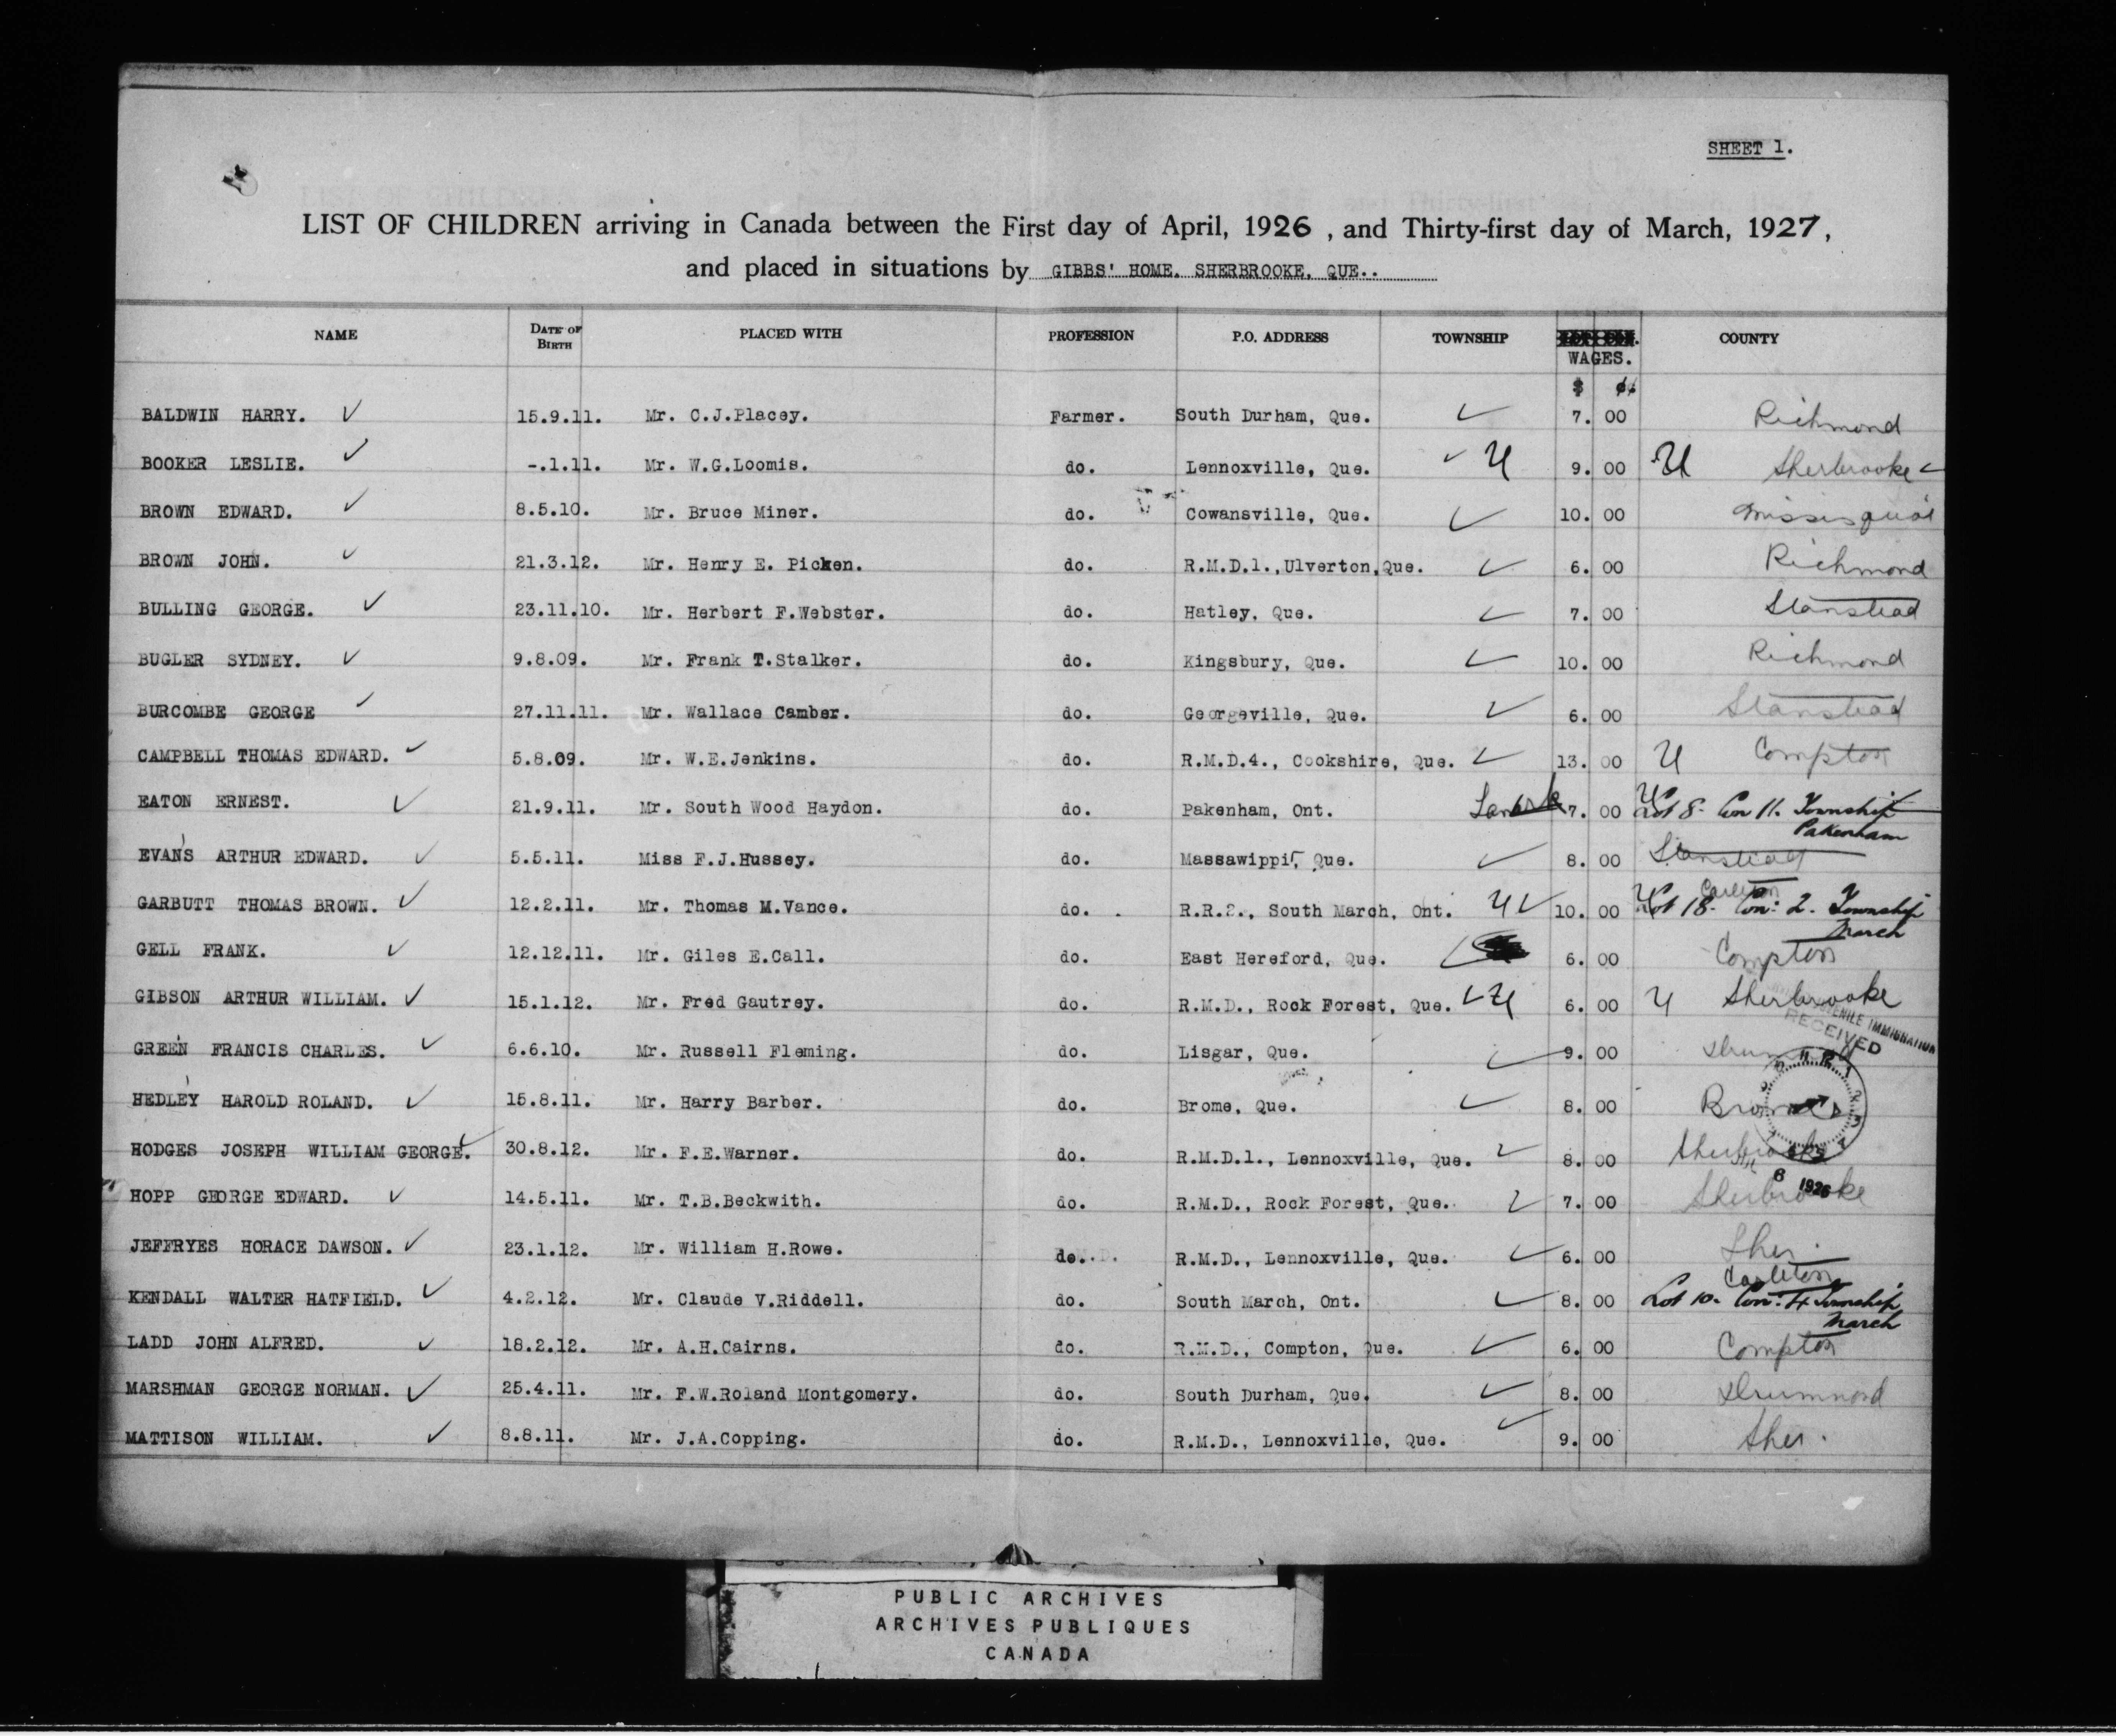 SHEET 1.
LIST OF CHILDREN arriving in Canada between the First day of April, 1926 , and Thirty-first day of March, 1927,
and placed in situations by GIBBS' HOME. SHERBROOKE, QUE..
NAME DATE OF BIRTH PLACED WITH PROFESSION P.O. ADDRESS TOWNSHIP WAGES. COUNTY
$ ¢
BALDWIN HARRY. ✓ 15.9.11. Mr. C.J.Placey. Farmer. South Durham, Que. ✓ 7. 00 Richmond
BOOKER LESLIE. ✓ -.1.11. Mr. W.G.Loomis. do. Lennoxville, Que. ✓ U 9. 00 U Sherbrooke ✓
BROWN EDWARD. ✓ 8.5.10. Mr. Bruce Miner. do. Cowansville, Que. ✓ 10. 00 Missisquoi
BROWN JOHN. ✓ 21.3.12. Mr. Henry E. Picken. do. R.M.D.1.,Ulverton,Que. ✓ 6. 00 Richmond
BULLING GEORGE. ✓ 23.11.10. Mr. Herbert F.Webster. do. Hatley, Que. ✓ 7. 00 Stanstead
BUGLER SYDNEY. ✓ 9.8.09. Mr. Frank T.Stalker. do. Kingsbury, Que. ✓ 10. 00 Richmond
BURCOMBE GEORGE ✓ 27.11.11. Mr. Wallace Camber. do. Georgeville, Que. ✓ 6. 00 Stanstead
CAMPBELL THOMAS EDWARD. ✓ 5.8.09. Mr. W.E.Jenkins. do. R.M.D.4., Cookshire, Que. ✓ 13. 00 U Compton
EATON ERNEST. ✓ 21.9.11. Mr. South Wood Haydon. do. Pakenham, Ont. Lanark 7. 00 Lot 8- Con 11. Township
Pakenham
EVANS ARTHUR EDWARD. ✓ 5.5.11. Miss F.J.Hussey. do. Massawippi, Que. ✓ 8. 00 Stanstead
Carleton
GARBUTT THOMAS BROWN. ✓ 12.2.11. Mr. Thomas M.Vance. do. . R.R.2., South March, Ont. U ✓ 10. 00 Lot 18- Con: 2. Township
March
GELL FRANK. ✓ 12.12.11. Mr. Giles E.Call. do. East Hereford, Que. ✓ 6. 00 Compton
GIBSON ARTHUR WILLIAM. ✓ 15.1.12. Mr. Fred Gautrey. do. R.M.D., Rock Forest, Que. ✓ U 6. 00 U Sherbrooke
JUVENILE IMMIGRATION
RECEIVED
GREEN FRANCIS CHARLES. ✓ 6.6.10. Mr. Russell Fleming. do. Lisgar, Que. ✓ 9. 00
HEDLEY HAROLD ROLAND. ✓ 15.8.11. Mr. Harry Barber. do. Brome, Que. ✓ 8. 00 Brome
HODGES JOSEPH WILLIAM GEORGE. ✓ 30.8.12. Mr. F.E.Warner. do. R.M.D.1., Lennoxville, Que. ✓ 8. 00 Sherbrooke
8 1926
HOPP GEORGE EDWARD. ✓ 14.5.11. Mr. T.B.Beckwith. do. R.M.D., Rock Forest, Que. ✓ 7. 00 Sherbrooke
JEFFRYES HORACE DAWSON. ✓ 23.1.12. Mr. William H.Rowe. do. R.M.D., Lennoxville, Que. ✓ 6. 00 Sher.
Carleton
KENDALL WALTER HATFIELD. ✓ 4.2.12. Mr. Claude V.Riddell. do. South March, Ont. ✓ 8. 00 Lot 10- Con: 4 Township
March
LADD JOHN ALFRED. ✓ 18.2.12. Mr. A.H.Cairns. do. R.M.D., Compton, Que. ✓ 6. 00 Compton
MARSHMAN GEORGE NORMAN. ✓ 25.4.11. Mr. F.W.Roland Montgomery. do. South Durham, Que. ✓ 8. 00 Drummond
MATTISON WILLIAM. ✓ 8.8.11. Mr. J.A.Copping. do. R.M.D., Lennoxville, Que. ✓ 9. 00 Sher.
PUBLIC ARCHIVES
ARCHIVES PUBLIQUES
CANADA